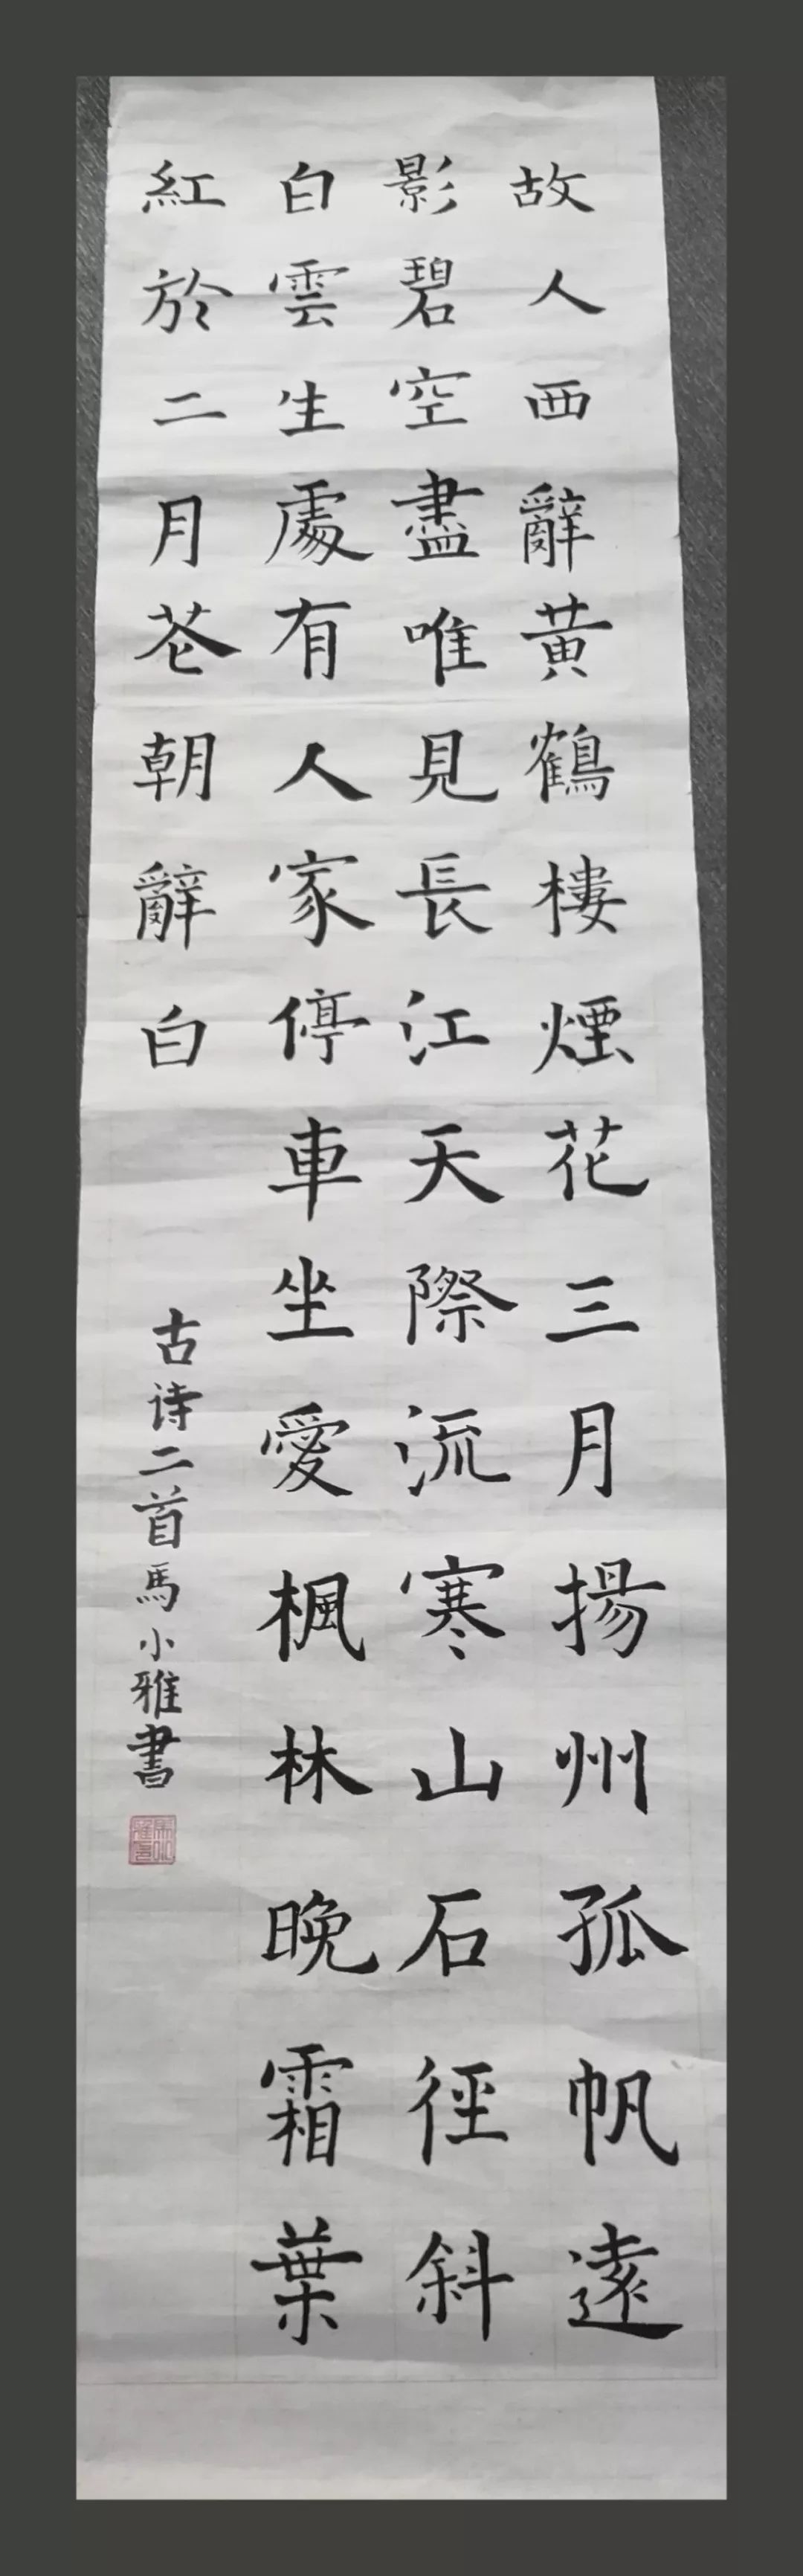 故人西辭黄鶴樓煙花三月揚州孤帆遠
影碧空盡唯見長江天際流寒山石徑斜
白雲生處有人家停車坐愛楓林晚霜葉
紅於二月花朝辭白
古诗二首馬小雅書